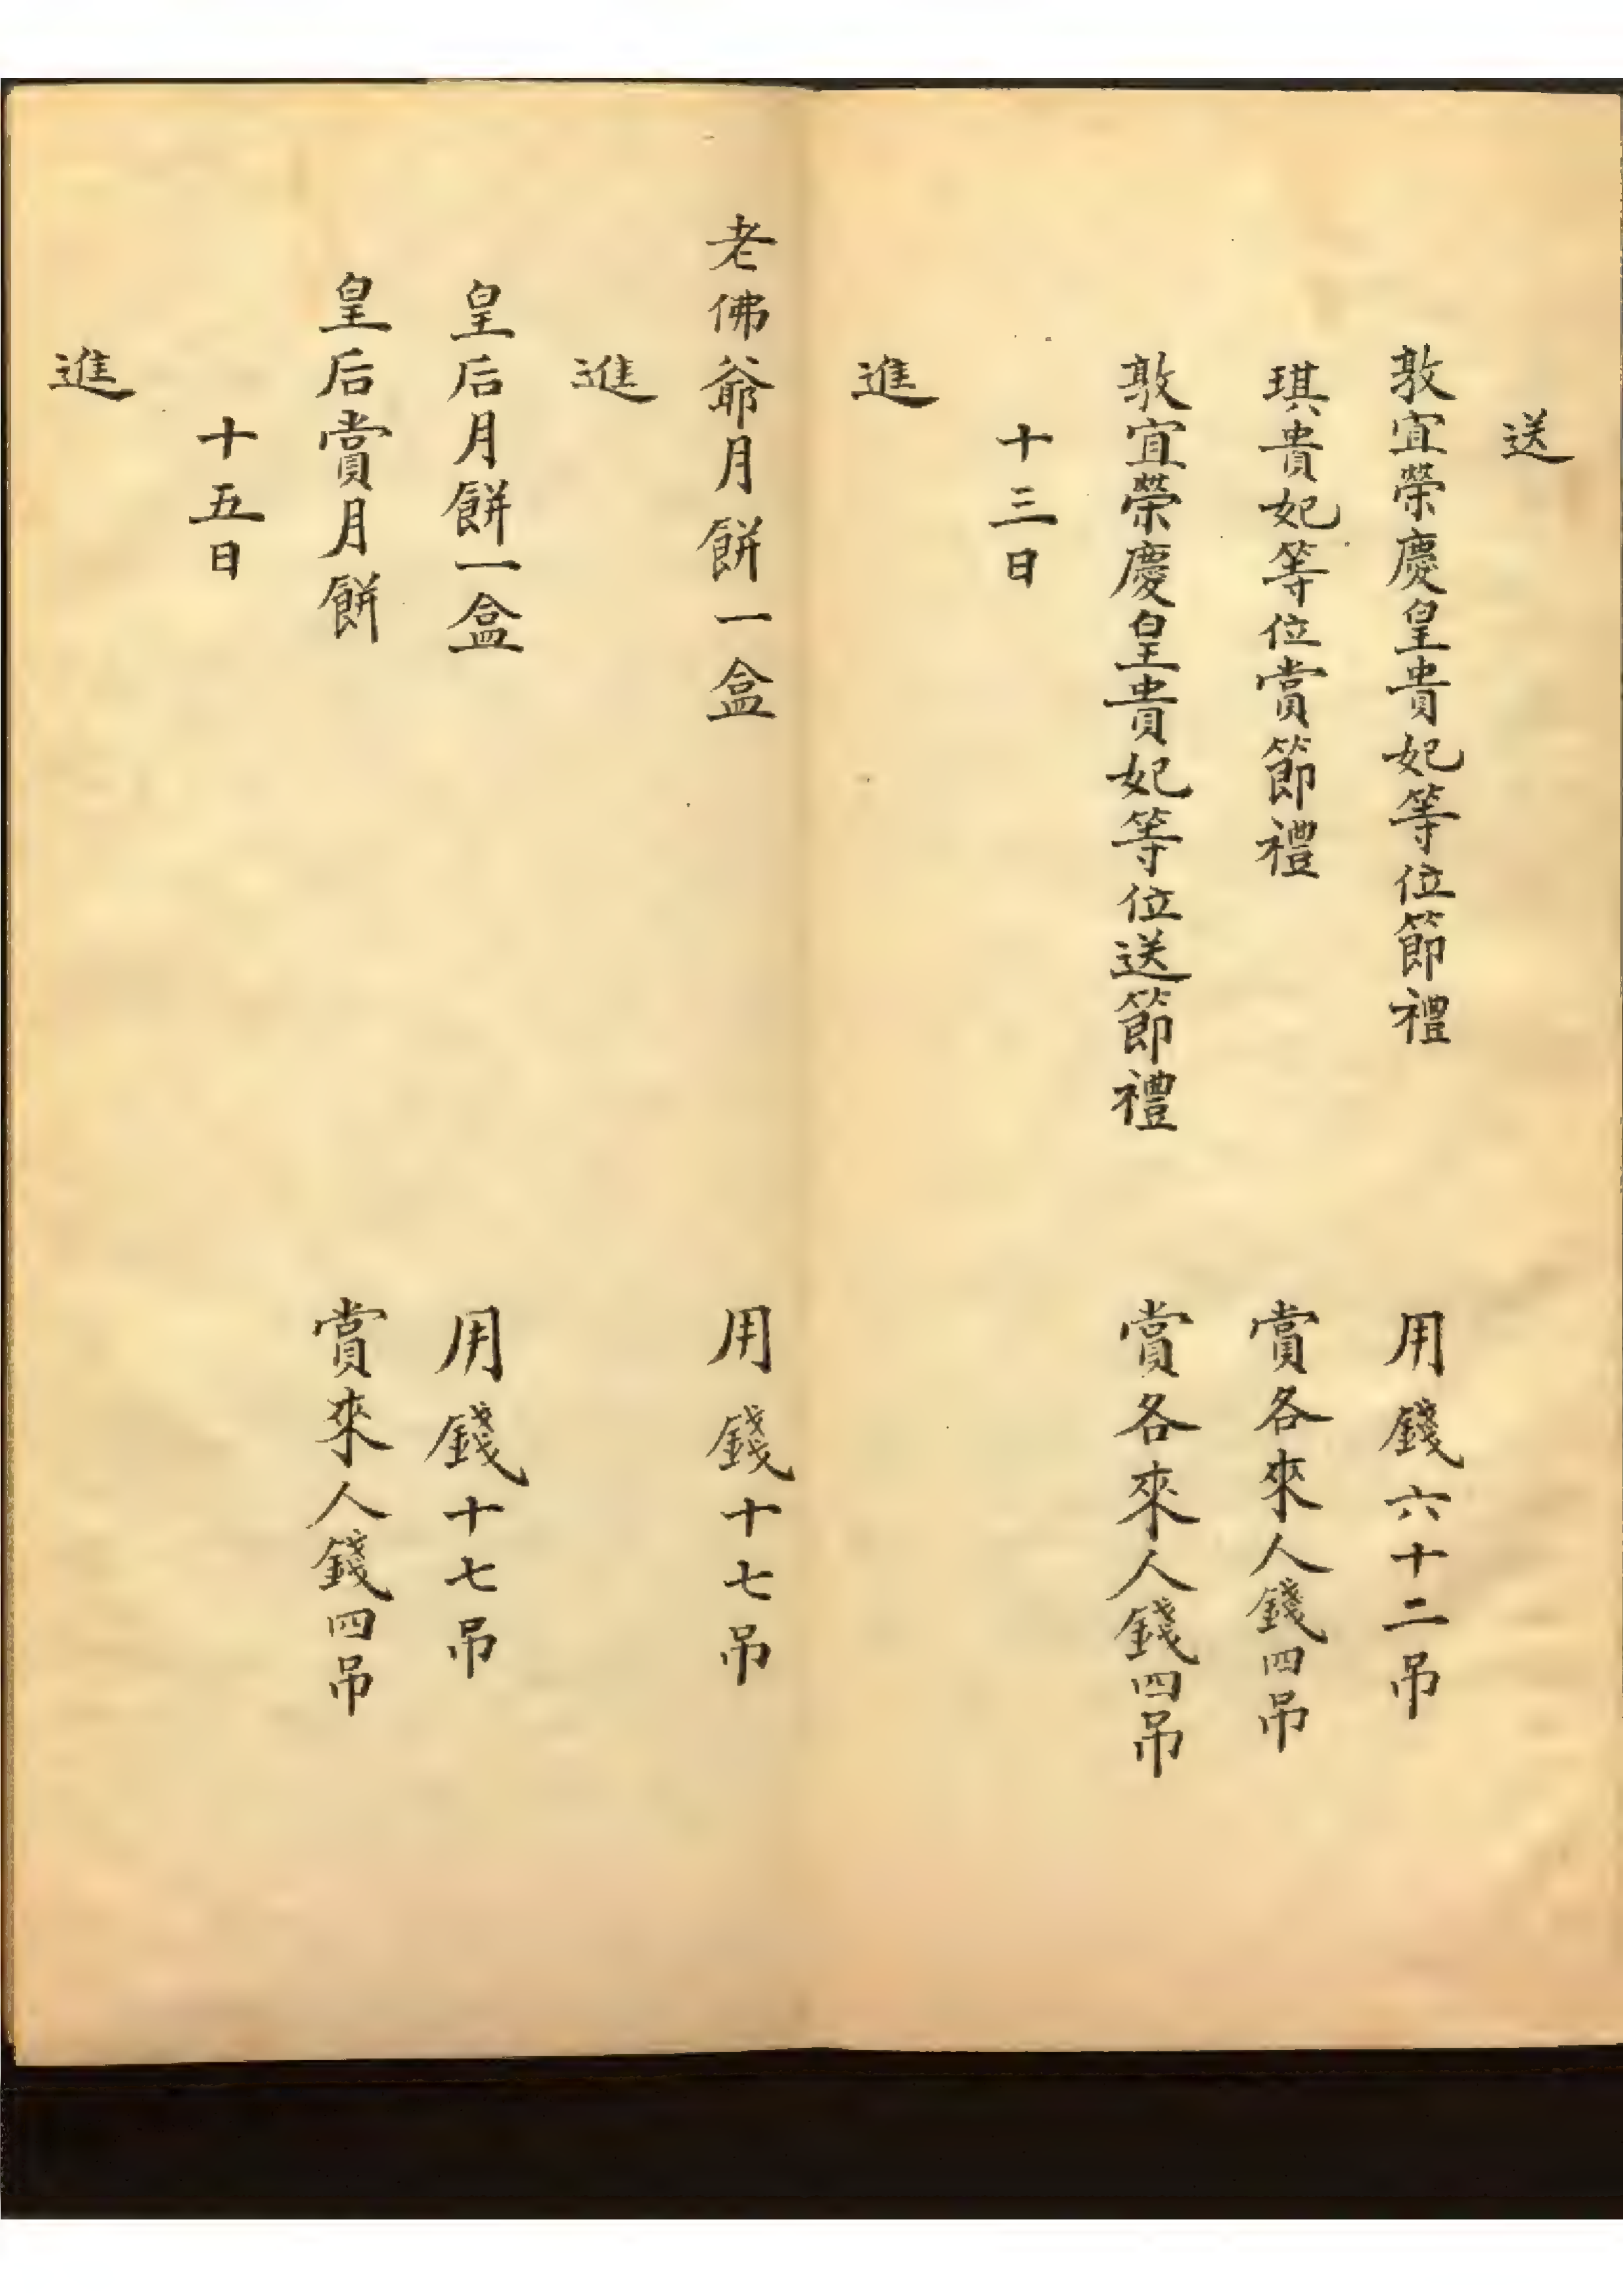 送
敦宜榮慶皇貴妃等位節禮 用錢六十二吊
琪貴妃等位賞節禮 賞各來人錢四吊
敦宜榮慶皇貴妃等位送節禮 賞各來人錢四吊
十三日
進
老佛爺月餅一盒 用錢十七吊
進
皇后月餅一盒 用錢十七吊
皇后賞月餅 賞來人錢四吊
十五日
進